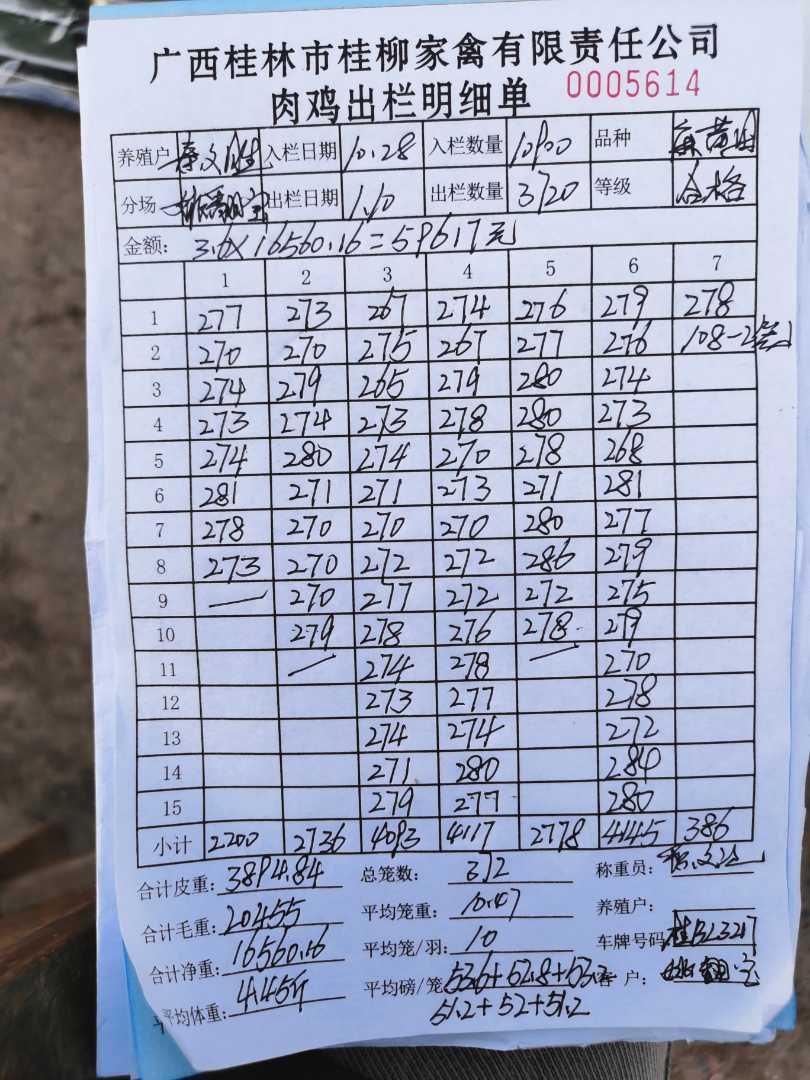 广西桂林市桂柳家禽有限责任公司
肉鸡出栏明细单 0005614
养殖户 秦文胜 入栏日期 10.28 入栏数量 10900 品种 麻黄
分场 出栏日期 1.10 出栏数量 3720 等级 合格
金额: 3.6×16560.16=59617元
1 2 3 4 5 6 7
1 277 273 267 274 276 279 278
2 270 270 275 267 277 276 108-2
3 274 279 265 279 280 274
4 273 274 273 278 280 273
5 274 280 274 270 278 268
6 281 271 271 273 271 281
7 278 270 270 270 280 277
8 273 270 272 272 286 279
9 — 270 277 272 272 275
10 279 278 276 278 279
11 — 274 278 — 270
12 273 277 278
13 274 274 272
14 271 280 284
15 279 277 280
小计 2200 2736 4093 4117 2778 4145 386
合计皮重: 3894.84 总笼数: 372 称重员:
合计毛重: 20455 平均笼重: 10.47 养殖户:
合计净重: 16560.16 平均笼/羽: 10 车牌号码 桂BL3217
平均体重: 4.45斤 平均磅/笼 53.6+52.8+53.2 客 户:
51.2+52+51.2